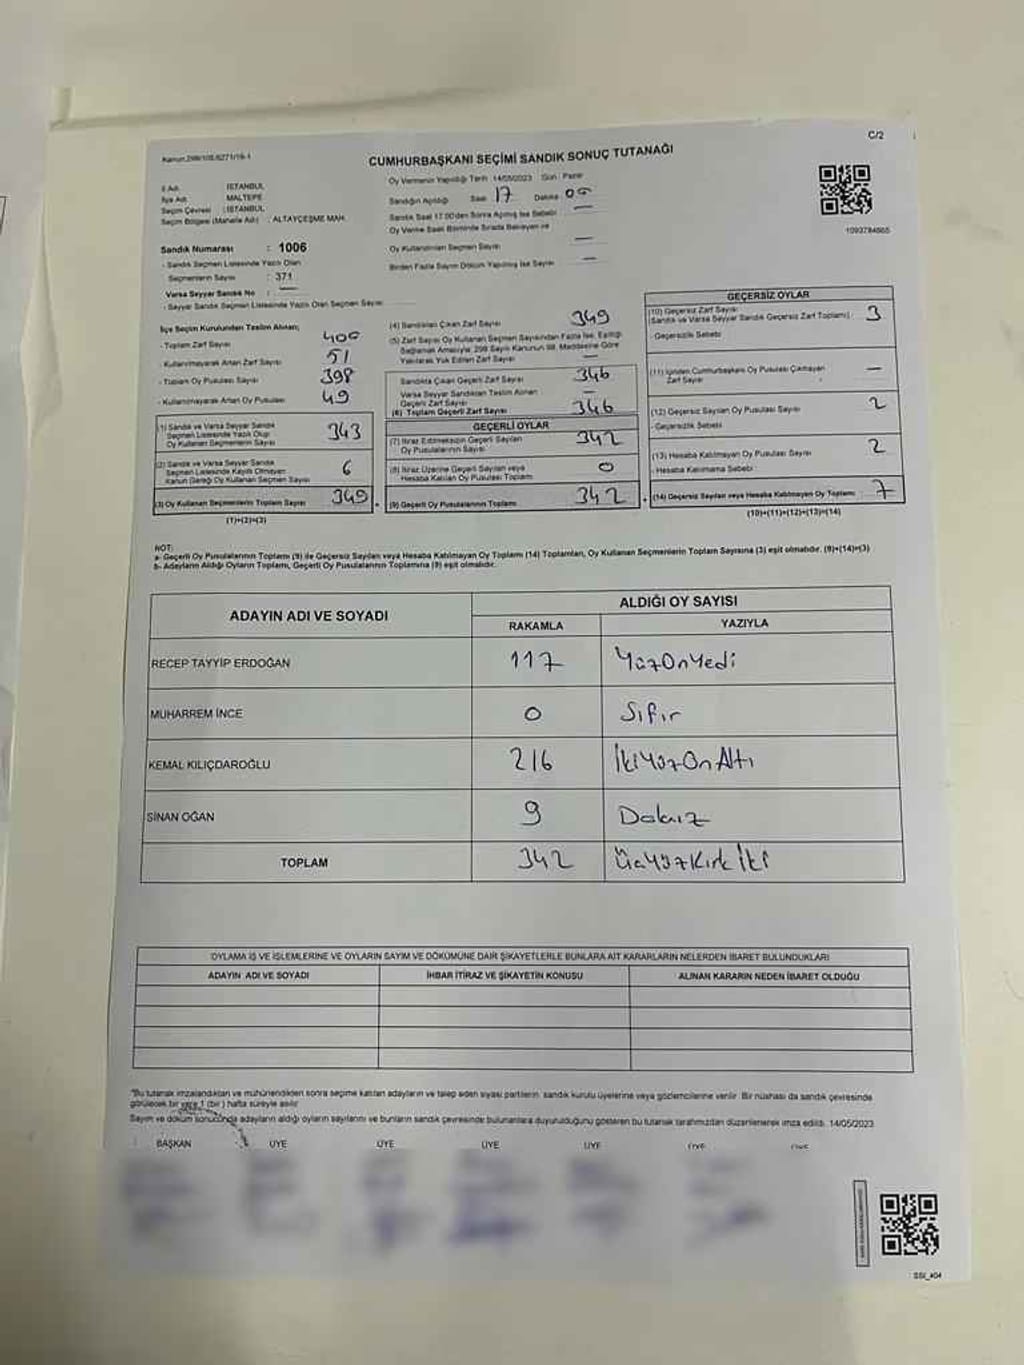 C/2
Kanun:298/105,6271/19-1
CUMHURBAŞKANI SEÇİMİ SANDIK SONUÇ TUTANAĞI
İl Adı : İSTANBUL
İlçe Adı : MALTEPE
Seçim Çevresi : İSTANBUL
Seçim Bölgesi (Mahalle Adı) : ALTAYÇEŞME MAH.
Oy Vermenin Yapıldığı Tarih 14/05/2023 Gün : Pazar
Sandığın Açıldığı Saat 17 Dakika 00
Sandık Saat 17:00'den Sonra Açılmış İse Sebebi —
Oy Verme Saati Bitiminde Sırada Bekleyen ve
Oy Kullandırılan Seçmen Sayısı —
Birden Fazla Sayım Döküm Yapılmış İse Sayısı —
1093784665
Sandık Numarası : 1006
- Sandık Seçmen Listesinde Yazılı Olan
Seçmenlerin Sayısı : 371
Varsa Seyyar Sandık No : —
- Seyyar Sandık Seçmen Listesinde Yazılı Olan Seçmen Sayısı
İlçe Seçim Kurulundan Teslim Alınan;
- Toplam Zarf Sayısı 400
- Kullanılmayarak Artan Zarf Sayısı 51
- Toplam Oy Pusulası Sayısı 398
- Kullanılmayarak Artan Oy Pusulası 49
(1) Sandık ve Varsa Seyyar Sandık
Seçmen Listesinde Yazılı Olup
Oy Kullanan Seçmenlerin Sayısı 343
(2) Sandık ve Varsa Seyyar Sandık
Seçmen Listesinde Kayıtlı Olmayan
Kanun Gereği Oy Kullanan Seçmen Sayısı 6
(3) Oy Kullanan Seçmenlerin Toplam Sayısı 349
(1)+(2)=(3)
(4) Sandıktan Çıkan Zarf Sayısı 349
(5) Zarf Sayısı Oy Kullanan Seçmen Sayısından Fazla İse, Eşitliği
Sağlamak Amacıyla; 298 Sayılı Kanunun 98. Maddesine Göre
Yakılarak Yok Edilen Zarf Sayısı —
Sandıkta Çıkan Geçerli Zarf Sayısı 346
Varsa Seyyar Sandıktan Teslim Alınan
Geçerli Zarf Sayısı —
(6) Toplam Geçerli Zarf Sayısı 346
GEÇERLİ OYLAR
(7) İtiraz Edilmeksizin Geçerli Sayılan
Oy Pusulalarının Sayısı 342
(8) İtiraz Üzerine Geçerli Sayılan veya
Hesaba Katılan Oy Pusulası Toplamı 0
(9) Geçerli Oy Pusulalarının Toplamı 342
GEÇERSİZ OYLAR
(10) Geçersiz Zarf Sayısı
(Sandık ve Varsa Seyyar Sandık Geçersiz Zarf Toplamı) 3
- Geçersizlik Sebebi
(11) İçinden Cumhurbaşkanı Oy Pusulası Çıkmayan
Zarf Sayısı —
(12) Geçersiz Sayılan Oy Pusulası Sayısı 2
- Geçersizlik Sebebi
(13) Hesaba Katılmayan Oy Pusulası Sayısı 2
- Hesaba Katılmama Sebebi
(14) Geçersiz Sayılan veya Hesaba Katılmayan Oy Toplamı 7
(10)+(11)+(12)+(13)=(14)
NOT:
a- Geçerli Oy Pusulalarının Toplamı (9) ile Geçersiz Sayılan veya Hesaba Katılmayan Oy Toplamı (14) Toplamları, Oy Kullanan Seçmenlerin Toplam Sayısına (3) eşit olmalıdır. (9)+(14)=(3)
b- Adayların Aldığı Oyların Toplamı, Geçerli Oy Pusulalarının Toplamına (9) eşit olmalıdır.
ADAYIN ADI VE SOYADI
ALDIĞI OY SAYISI
RAKAMLA YAZIYLA
RECEP TAYYİP ERDOĞAN 117 YüzOnYedi
MUHARREM İNCE 0 Sıfır
KEMAL KILIÇDAROĞLU 216 İkiYüzOnAltı
SİNAN OĞAN 9 Dokuz
TOPLAM 342 ÜçYüzKırkİki
OYLAMA İŞ VE İŞLEMLERİNE VE OYLARIN SAYIM VE DÖKÜMÜNE DAİR ŞİKAYETLERLE BUNLARA AİT KARARLARIN NELERDEN İBARET BULUNDUKLARI
ADAYIN ADI VE SOYADI İHBAR İTİRAZ VE ŞİKAYETİN KONUSU ALINAN KARARIN NEDEN İBARET OLDUĞU
"Bu tutanak imzalandıktan ve mühürlendikten sonra seçime katılan adayların ve talep eden siyasi partilerin sandık kurulu üyelerine veya gözlemcilerine verilir. Bir nüshası da sandık çevresinde
görülecek bir yere 1 (bir ) hafta süreyle asılır.
Sayım ve döküm sonucunda adayların aldığı oyların sayılarını ve bunların sandık çevresinde bulunanlara duyurulduğunu gösteren bu tutanak tarafımızdan düzenlenerek imza edildi. 14/05/2023
BAŞKAN ÜYE ÜYE ÜYE ÜYE ÜYE ÜYE
SSI_404